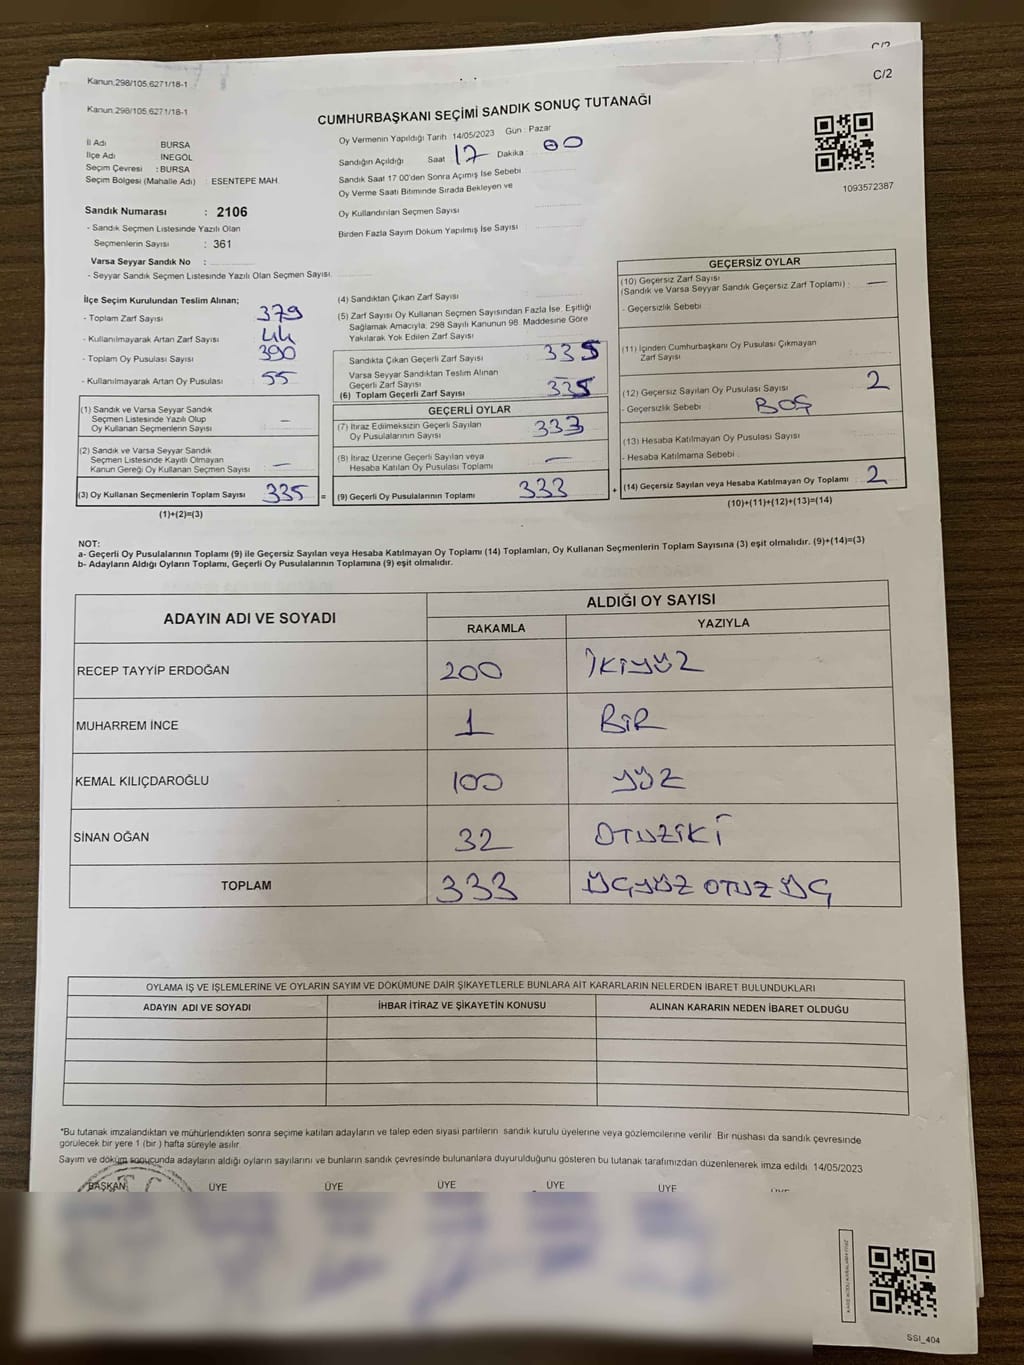 C/2
Kanun.298/105,6271/18-1
C/2
Kanun.298/105,6271/18-1
CUMHURBAŞKANI SEÇİMİ SANDIK SONUÇ TUTANAĞI
Oy Vermenin Yapıldığı Tarih 14/05/2023 Gün : Pazar
İl Adı BURSA
İlçe Adı İNEGÖL
Seçim Çevresi : BURSA
Seçim Bölgesi (Mahalle Adı) : ESENTEPE MAH.
Sandığın Açıldığı Saat 17 Dakika : 00
Sandık Saat 17.00'den Sonra Açımış İse Sebebi
Oy Verme Saati Bitiminde Sırada Bekleyen ve
Oy Kullandırılan Seçmen Sayısı
Birden Fazla Sayım Döküm Yapılmış İse Sayısı
1093572387
Sandık Numarası : 2106
- Sandık Seçmen Listesinde Yazılı Olan
Seçmenlerin Sayısı : 361
Varsa Seyyar Sandık No :
- Seyyar Sandık Seçmen Listesinde Yazılı Olan Seçmen Sayısı
İlçe Seçim Kurulundan Teslim Alınan;
- Toplam Zarf Sayısı : 379
- Kullanılmayarak Artan Zarf Sayısı : 44
- Toplam Oy Pusulası Sayısı : 390
- Kullanılmayarak Artan Oy Pusulası : 55
(1) Sandık ve Varsa Seyyar Sandık
Seçmen Listesinde Yazılı Olup
Oy Kullanan Seçmenlerin Sayısı : —
(2) Sandık ve Varsa Seyyar Sandık
Seçmen Listesinde Kayıtlı Olmayan
Kanun Gereği Oy Kullanan Seçmen Sayısı : —
(3) Oy Kullanan Seçmenlerin Toplam Sayısı : 335 =
(1)+(2)=(3)
(4) Sandıktan Çıkan Zarf Sayısı
(5) Zarf Sayısı Oy Kullanan Seçmen Sayısından Fazla İse, Eşitliği
Sağlamak Amacıyla; 298 Sayılı Kanunun 98. Maddesine Göre
Yakılarak Yok Edilen Zarf Sayısı
Sandıkta Çıkan Geçerli Zarf Sayısı : 335
Varsa Seyyar Sandıktan Teslim Alınan
Geçerli Zarf Sayısı
(6) Toplam Geçerli Zarf Sayısı : 335
GEÇERLİ OYLAR
(7) İtiraz Edilmeksizin Geçerli Sayılan
Oy Pusulalarının Sayısı : 333
(8) İtiraz Üzerine Geçerli Sayılan veya
Hesaba Katılan Oy Pusulası Toplamı : —
(9) Geçerli Oy Pusulalarının Toplamı : 333 +
GEÇERSİZ OYLAR
(10) Geçersiz Zarf Sayısı
(Sandık ve Varsa Seyyar Sandık Geçersiz Zarf Toplamı) : —
- Geçersizlik Sebebi :
(11) İçinden Cumhurbaşkanı Oy Pusulası Çıkmayan
Zarf Sayısı
(12) Geçersiz Sayılan Oy Pusulası Sayısı : 2
- Geçersizlik Sebebi : BOŞ
(13) Hesaba Katılmayan Oy Pusulası Sayısı
- Hesaba Katılmama Sebebi :
(14) Geçersiz Sayılan veya Hesaba Katılmayan Oy Toplamı : 2
(10)+(11)+(12)+(13)=(14)
NOT:
a- Geçerli Oy Pusulalarının Toplamı (9) ile Geçersiz Sayılan veya Hesaba Katılmayan Oy Toplamı (14) Toplamları, Oy Kullanan Seçmenlerin Toplam Sayısına (3) eşit olmalıdır. (9)+(14)=(3)
b- Adayların Aldığı Oyların Toplamı, Geçerli Oy Pusulalarının Toplamına (9) eşit olmalıdır.
ADAYIN ADI VE SOYADI ALDIĞI OY SAYISI
RAKAMLA YAZIYLA
RECEP TAYYİP ERDOĞAN 200 İKİYÜZ
MUHARREM İNCE 1 BİR
KEMAL KILIÇDAROĞLU 100 YÜZ
SİNAN OĞAN 32 OTUZİKİ
TOPLAM 333 ÜÇYÜZ OTUZ ÜÇ
OYLAMA İŞ VE İŞLEMLERİNE VE OYLARIN SAYIM VE DÖKÜMÜNE DAİR ŞİKAYETLERLE BUNLARA AİT KARARLARIN NELERDEN İBARET BULUNDUKLARI
ADAYIN ADI VE SOYADI İHBAR İTİRAZ VE ŞİKAYETİN KONUSU ALINAN KARARIN NEDEN İBARET OLDUĞU
*Bu tutanak imzalandıktan ve mühürlendikten sonra seçime katılan adayların ve talep eden siyasi partilerin sandık kurulu üyelerine veya gözlemcilerine verilir. Bir nüshası da sandık çevresinde
görülecek bir yere 1 (bir) hafta süreyle asılır.
Sayım ve döküm sonucunda adayların aldığı oyların sayılarını ve bunların sandık çevresinde bulunanlara duyurulduğunu gösteren bu tutanak tarafımızdan düzenlenerek imza edildi. 14/05/2023
BAŞKAN ÜYE ÜYE ÜYE ÜYE ÜYE
SSI_404